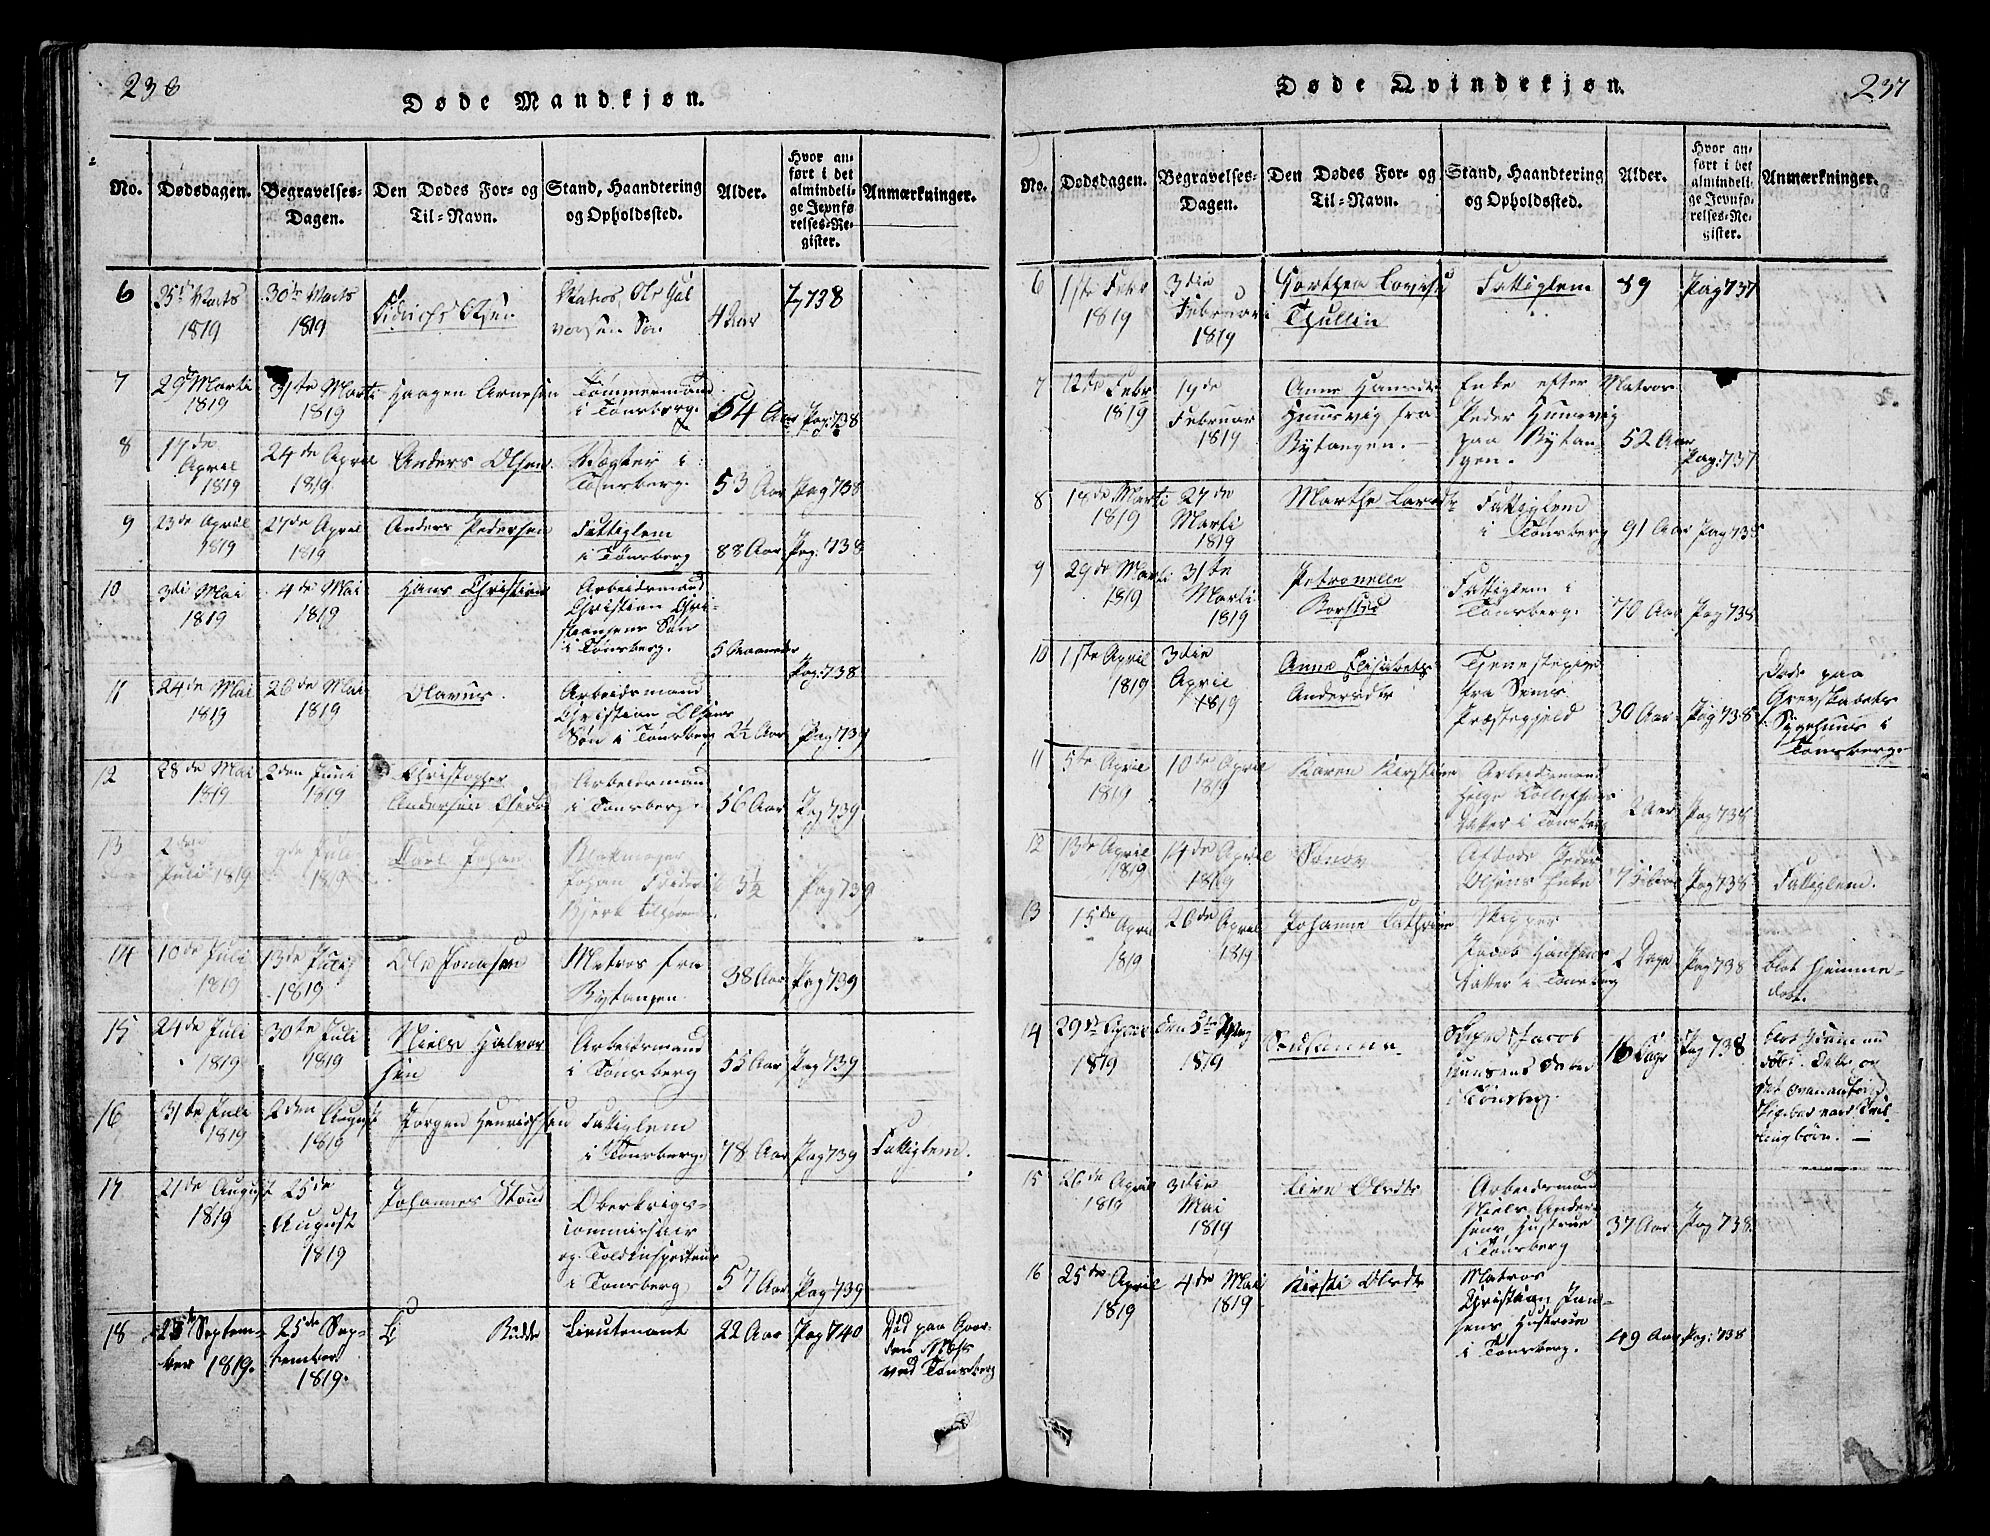 236
Døde Mandkjøn.
No.
Dødsdagen.
Begravelses-
Dagen.
Den Dødes For- og
Til-Navn.
Stand, Haandtering
og Opholdssted.
Alder.
Hvor an-
ført i det
almindeli-
ge Jevnfø-
relses-Re-
gister.
Anmærkninger.
6
1819
30te Marts
1819
Olsen
Matros, Ole Hal
vorsen Søn
4 Aar
738
7
29de Marti
1819
31te Marti
1819
Haagen Arnesen
Tømmermand
i Tønsberg.
64 Aar
Pag: 738
8
17de
April
1819
24de April
1819
Anders Olsen
Vægter i
Tønsberg.
53 Aar
Pag 738
9
23de April
1819
27de April
1819
Anders Pedersen
Fattiglem
i Tønsberg
88 Aar
Pag: 738
10
3die Mai
1819
4de Mai
1819
Hans Christian
Arbeidsmand
Christian Chri-
stiansens Søn
i Tønsberg.
5 Maaneder
Pag: 738
11
24de Mai
1819
26de Mai
1819
Olavus.
Arbeidsmand
Christian Olsens
Søn i Tønsberg
2½ Aar
Pag: 739
12
28de Mai
1819
2den Juni
1819
Christopher
Andersen
Arbeidsmand
i Tønsberg.
56 Aar
Pag 739
13
2den
Juli 1819
Juli
1819
Carl Johan
Johan Frederik
Bjerk
3½
Pag 739
14
10de Juli
1819
13de Juli
1819
Ole Jonasen
Matros fra
Bytangen
38 Aar
Pag 739
15
24de Juli
1819
30te Juli
1819
Niels Halvor
sen
Arbeidsmand
i Tønsberg
55 Aar
Pag 739
16
31te Juli
1819
2den August
1819
Jørgen Henrichsen
Fattiglem
i Tønsberg.
78 Aar
Pag 739
Fattiglem.
17
21de August
1819
25de
August
1819
Johannes Stoud
Oberkrigs-
commissair
og Toldinspecteur
i Tønsberg
57 Aar
Pag 739
18
Septem-
ber 1819.
25de Sep-
tember
1819.
Budde
Lieutenant
22 Aar
Pag 740
Død paa Gaar-
den
ved Tønsberg
237
Døde Qvindekjøn.
No.
Dødsdagen.
Begravelses-
Dagen.
Den Dødes For- og
Til-Navn.
Stand, Haandtering
og Opholdssted.
Alder.
Hvor an-
ført i det
almindeli-
ge Jevnfø-
relses-Re-
gister.
Anmærkninger.
6
1ste Febr
1819
3die
Februari
1819
Dorthea Lovisa
Thullin
Fattiglem
89
Pag 737
7
12te Febr
1819
19de
Februar
1819
Anne Hansdtr
Huusvig fra
Bytangen.
Enke efter Matros
Peder Huusvig
paa Bytan
gen.
52 Aar
Pag: 737
8
18de Marti
1819
27de
Marti
1819
Marthe Larsdtr
Fattiglem
i Tønsberg
91 Aar
Pag 738
9
29de Marti
1819
31te
Marti
1819
Petronelle
Fattiglem i
Tønsberg.
70 Aar
Pag 738
10
1ste April
1819
3die
April
1819
Anne Elisabeth
Andersdtr
Tjenestepige
fra Sems
Præstegjeld
30 Aar
Pag 738
Døde paa
Grevskabets
Sygehuus i
Tønsberg
11
5te April
1819
10de April
1819
Karen Kirstine
Arbeidsmand
Helge
Datter i Tønsberg
2 Aar
Pag 738
12
13de April
1819
14de April
1819
Afdøde Peder
Olsens Enke
Pag 738
Fattiglem.
13
15de
April
1819
20de April
1819
Johanne Cathrine
Skipper
Jacob Hansens
Datter i Tønsberg
2 Dage
Pag 738
blot hjemme-
døbt.
14
29de April
1819
den 5te May
1819
Jacob
Hansens Datter
i Tønsberg.
16 Dage
Pag 738
15
26de April
1819
3die
Mai
1819
Live Olsdtr
Arbeidsmand
Niels Ander-
sens Hustrue
i Tønsberg
37 Aar
Pag 738
16
25de April
1819
4de Mai
1819
Kirsti Olsdtr
Matros
Christian Jan-
sens Hustrue
i Tønsberg.
49 Aar
Pag: 738